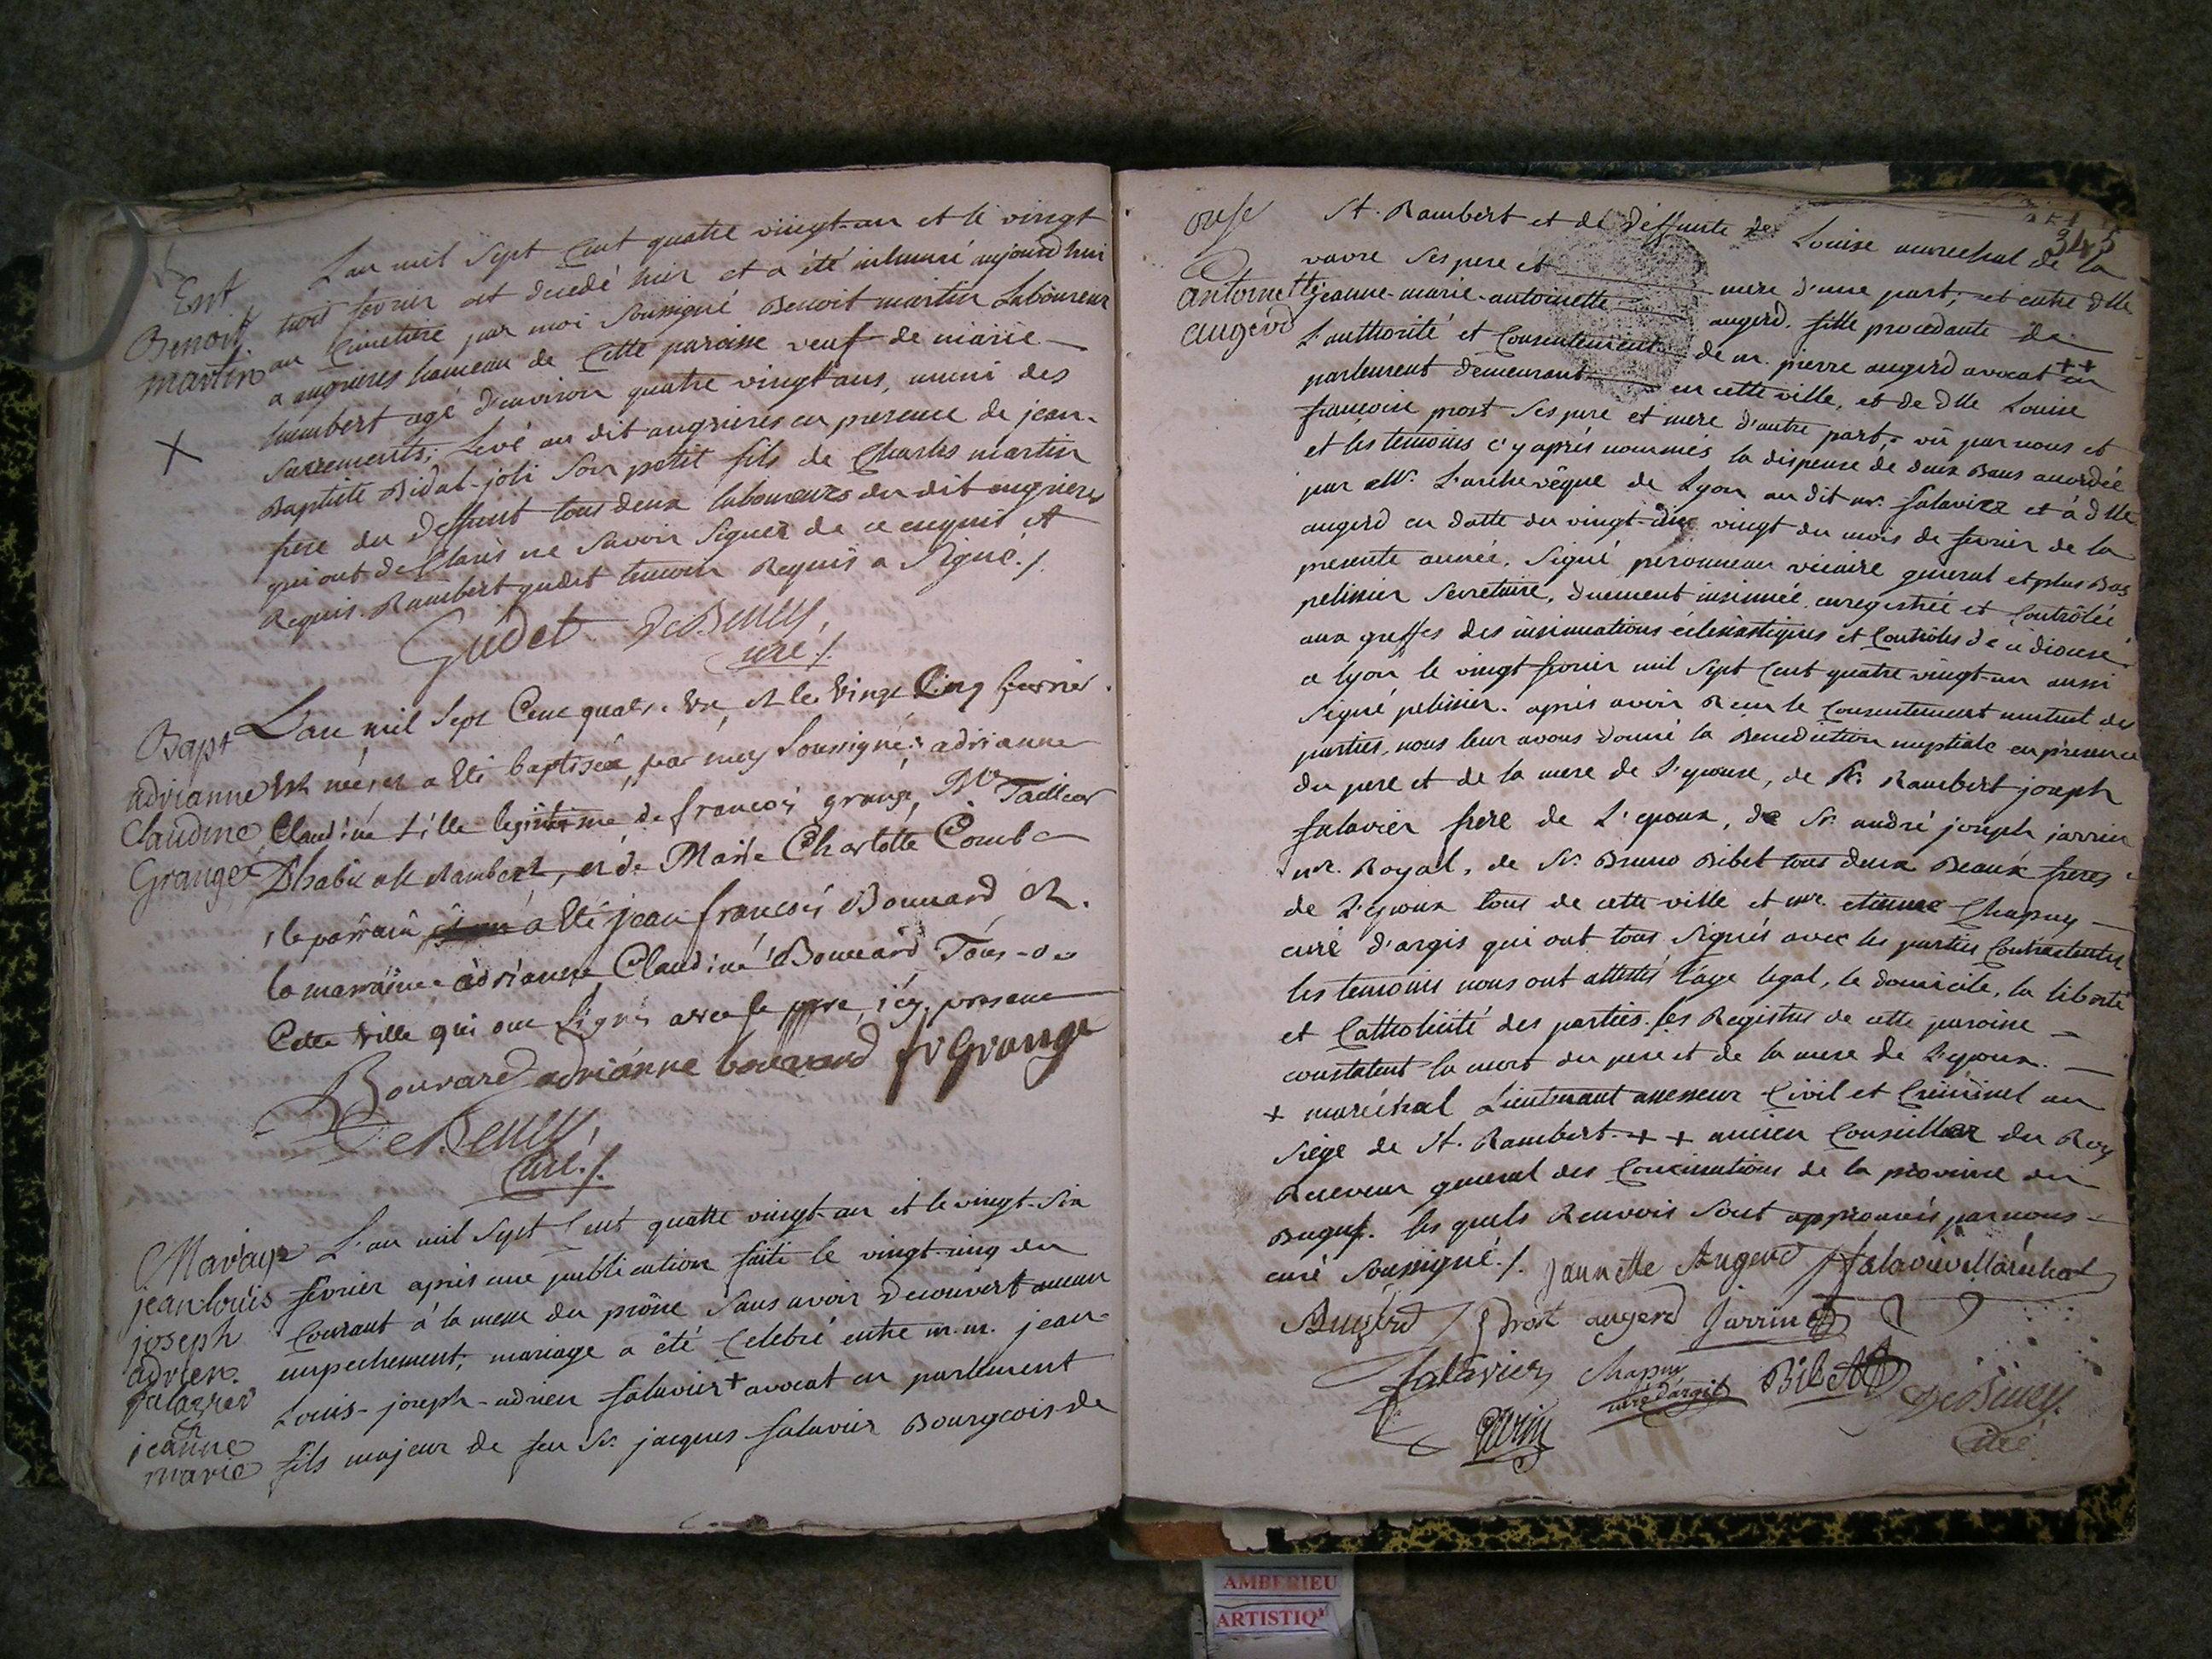 Ent
Benoit
martin
L'an mil sept cent quatre vingt-un et le vingt
trois fevrier est decedé hier et a été inhumé aujourd'hui
au cimetiere par moi soussigné Benoit martin Laboureur
a angrieres hameau de cette paroisse veuf de marie
humbert agé d'environ quatre vingt ans, muni des
sacrements; Levé au dit angrieres en presence de jean-
Baptiste Bidal-joli son petit fils de Charles martin
frere du deffunt tous deux laboureurs du dit angrieres
qui ont declarés ne savoir signer de ce enquis et
Requis. Rambert gudet temoin Requis a signé./.
Gudet DeBeuey,
curé./.
Bapt
adrianne
Claudine
Granger
L'an mil sept Cent quatr. un, et le vingt Cinq fevrier
est née, et a eté baptisée, par moy soussigné: adrianne
Claudine fille legitime de francois grange, Me Tailleur
Dhabit a st Rambert, et de Marie Charlotte Combe
le parrain a eté jean francois Bouvard et
la marraine adrianne Claudine Bouvard Tous-de
Cette ville qui ont signés avec le pere, icy present
Bouvard adriánne bouvard fr Grange
DeBeuey,
Curé./.
Mariage
jean louis
joseph
adrien
falavier
et
jeanne
marie
L'an mil sept cent quatre vingt-un et le vingt-six
fevrier après une publication faite le vingt-cinq du
Courant à la messe du prône sans avoir decouvert aucun
empechement; mariage a été Celebré entre m.m. jean-
Louis-joseph-adrien falavier + avocat en parlement
fils majeur de feu Sr. jacques falavier Bourgeois de
345
antoinette
augerd
St. Rambert et de deffunte de Louise marechal de la
vavre ses pere et mere d'une part, et entre dlle
jeanne-marie-antoinette augerd. fille procedante de
L'authorité et Consentement de m. pierre augerd avocat ++ en
parlement demeurant en cette ville, et de dlle Louise
françoise prost ses pere et mere d'autre part, vû par nous et
et les temoins c'y aprés nommés la dispense de deux Bans accordée
par Mr. L'archevêque de Lyon au dit mr. falavier et à dlle
augerd en datte du vingt vingt du mois de fevrier de la
presente année, Signé vicaire general et plus Bas
pelissier Secretaire, duement insinuée, enregistrée et Contrôlée
aux greffes des insinuations eclesiastiques et Contrôles de ce diocese
a Lyon le vingt fevrier mil sept Cent quatre vingt-un aussi
signé pelissier. après avoir Recu le Consentement mutuel des
parties, nous leur avons donné la Benediction nuptiale en presence
du pere et de la mere de l'epouse, de Sr. Rambert joseph
falavier frere de l'epoux, de Sr. andré joseph jarrin
Royal, de Sr. Bruno Bibet tous deux Beaux freres
de l'epoux tous de cette ville et mre. etienne Chapuy
curé d'argis qui ont tous signés avec les parties Contractantes
les temoins nous ont attestés l'age legal, le domicile, la liberté
et Catholicité des parties. les Registres de cette paroisse
constatent la mort du pere et de la mere de l'epoux.
+ maréchal Lieutenant assesseur Civil et Criminel au
siège de St. Rambert. ++ ancien Conseiller du Roy
Receveur general des Consinations de la province du
Bugey. les quels Renvois sont approuvés par nous
curé soussigné./. Jannette Augerd falavier Maréchal
Augerd Prost augerd Jarrin
falavier chapuy
curé d'argis Bibet DeBeuey.
Curé
AMBERIEU
ARTISTIQ